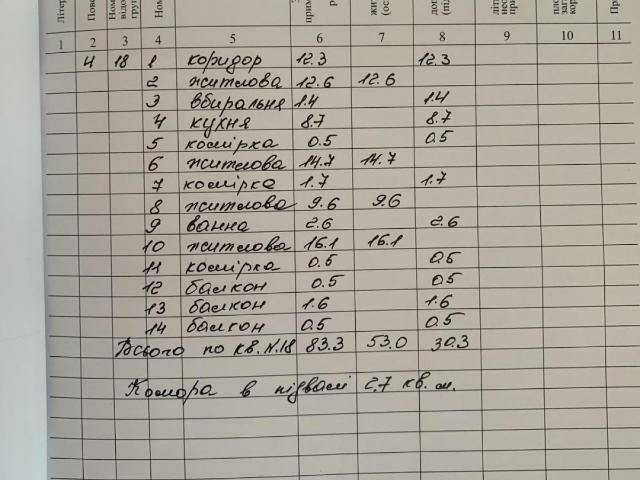 1 2 3 4 5 6 7 8 9 10 11
4 18 1 коридор 12.3 12.3
2 житлова 12.6 12.6
3 вбиральня 1.4 1.4
4 кухня 8.7 8.7
5 комірка 0.5 0.5
6 житлова 14.7 14.7
7 комірка 1.7 1.7
8 житлова 9.6 9.6
9 ванна 2.6 2.6
10 житлова 16.1 16.1
11 комірка 0.5 0.5
12 балкон 0.5 0.5
13 балкон 1.6 1.6
14 балкон 0.5 0.5
Всього по кв. N.18 83.3 53.0 30.3
Комора в підвалі 2.7 кв. м.